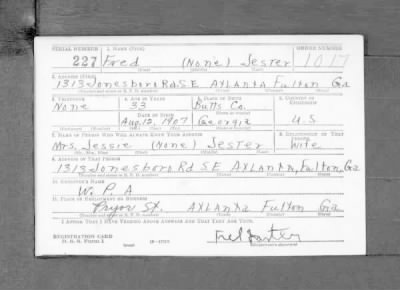 SERIAL NUMBER 1. NAME (Print) ORDER NUMBER
227 Fred (None) Jester 1017
2. ADDRESS (Print)
1313 Jonesboro Rd S.E Atlanta Fulton Ga
3. TELEPHONE 4. AGE IN YEARS 5. PLACE OF BIRTH 6. COUNTRY OF CITIZENSHIP
None 33 Butts Co.
DATE OF BIRTH
Aug. 12, 1907 Georgia U.S
7. NAME OF PERSON WHO WILL ALWAYS KNOW YOUR ADDRESS 8. RELATIONSHIP OF THAT PERSON
Mrs. Jessie (None) Jester Wife
9. ADDRESS OF THAT PERSON
1313 Jonesboro Rd S.E Atlanta, Fulton, Ga
10. EMPLOYER'S NAME
W. P. A
11. PLACE OF EMPLOYMENT OR BUSINESS
Pryor St. Atlanta Fulton Ga
I AFFIRM THAT I HAVE VERIFIED ABOVE ANSWERS AND THAT THEY ARE TRUE.
REGISTRATION CARD
D. S. S. Form 1
Fred Jester